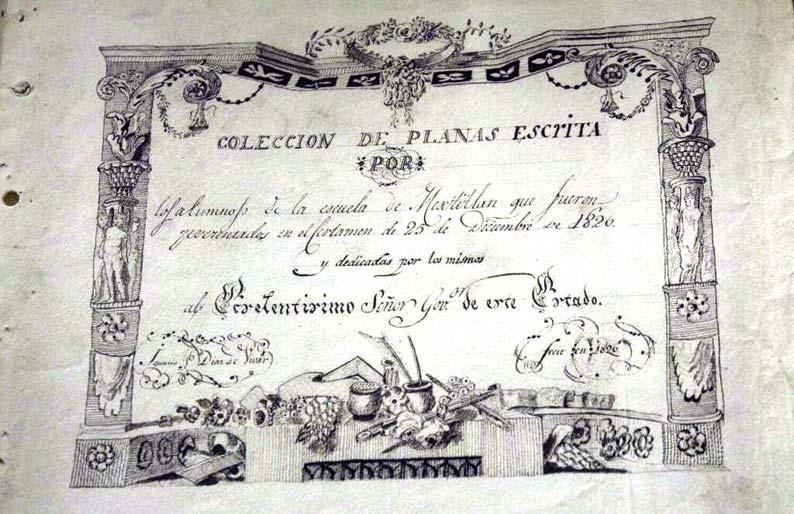 COLECCION DE PLANAS ESCRITA
POR
los alumnos de la escuela de Mextitlan que fueron
presentados en el Certamen de 25 de Diciembre de 1826.
y dedicadas por los mismos
al Excelentisimo Señor Gov.or de este Estado.
Diaz de Vivar
fecit en 1826